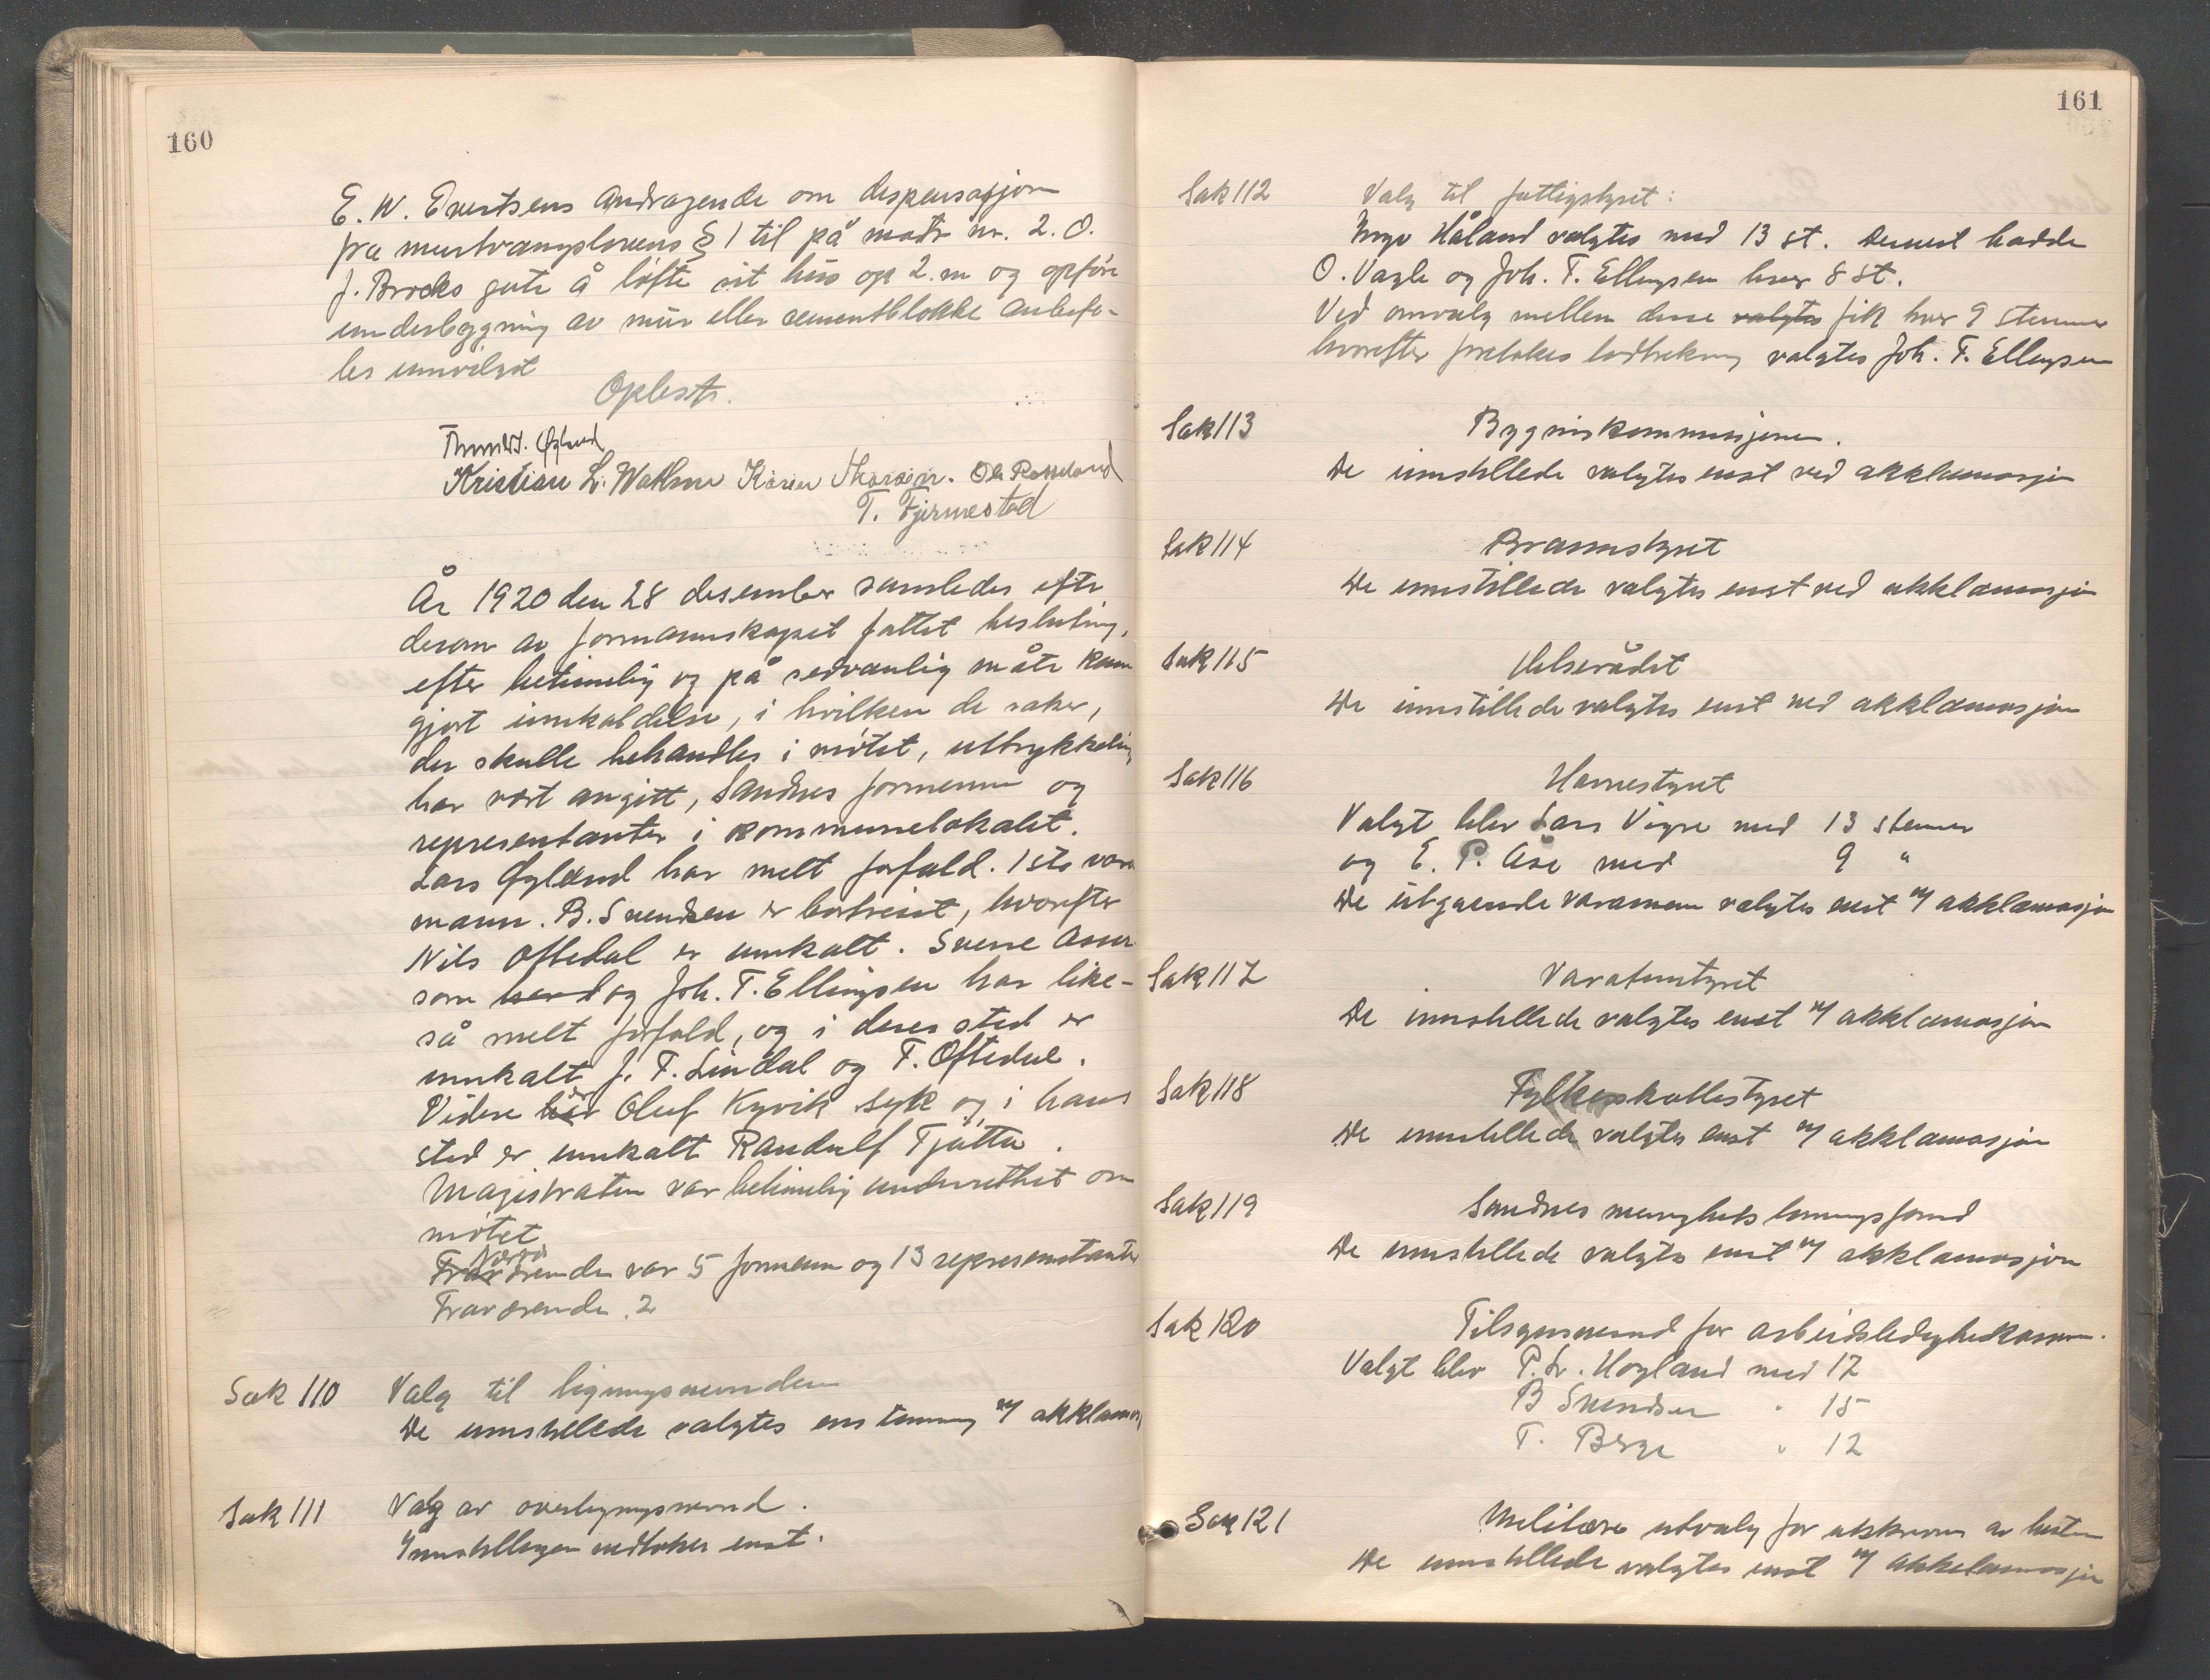 160
E. W. Evertsens andragende om dispensasjon
fra murtvangslovens § 1 til på matr nr. 2. O.
J. Brocks gate å løfte sit hus op 2. m og opføre
underbygning av mur eller sementblokke anbefa-
les innvilget
Oplest.
Kristian L. Wathne Karen Ole Rosseland
T. Fjermestad
År 1920 den 28 desember samledes efter
derom av formannskapet fattet beslutning,
efter betimelig og på sedvanlig måte kunn
gjort innkaldelse, i hvilken de saker,
der skulle behandles i møtet, uttrykkelig
har vært angitt, Sandnes formenn og
representanter i kommunelokalet.
Lars Øgland har melt forfald. 1ste vara
mann. B. Svendsen er bortreist, hvorefter
Nils Oftedal er innkalt. Sverre Asser
som og Joh. F. Ellingsen har like-
så melt forfald, og i deres sted er
innkalt J. F. Lindal og F. Oftedal.
Videre er Oluf Kyvik syk og i hans
sted er innkalt Randulf Tjåtta.
Magistraten var betimelig underrettet om
møtet
Nærværende var 5 formenn og 13 representanter
Fraværende 2
Sak 110 Valg til ligningsnemnden
De innstillede valgtes enstemmig v/ akklamasj
Sak 111 Valg av overligningsnemnd.
Innstillingen vedtokes enst.
161
Sak 112 Valg til fattigstyret:
Inge Håland valgtes med 13 st. Dernest hadde
O. Vagle og Joh. F. Ellingsen hver 8 st.
Ved omvalg mellem disse valgtes fik hver 9 stemmer
hvorefter foretokes lodtrekning valgtes Joh. F. Ellingsen
Sak 113 Bygniskommisjonen.
De innstillede valgtes enst ved akklamasjon
Sak 114 Brannstyret
De innstillede valgtes enst ved akklamasjon
Sak 115 Helserådet
De innstillede valgtes enst ved akklamasjon
Sak 116 Havnestyret
Valgt blev Lars Vigre med 13 stemmer
og E. P. Åse med 9 "
De utgaende varamenn valgtes enst v/ akklamasjon
Sak 117 Varatunstyret
De innstillede valgtes enst v/ akklamasjon
Sak 118 Fylkesskattestyret
De innstillede valgtes enst v/ akklamasjon
Sak 119 Sandnes menighets lønningsfond
De innstillede valgtes enst v/ akklamasjon
Sak 120 Tilsynsnemnd for arbeidsledighetskassen.
Valgt blev P. Hogland med 17
B Svendsen " 15
T. Berge " 12
Sak 121 Militære utvalg for utskrivn av hester
De innstillede valgtes enst v/ akklamasjon